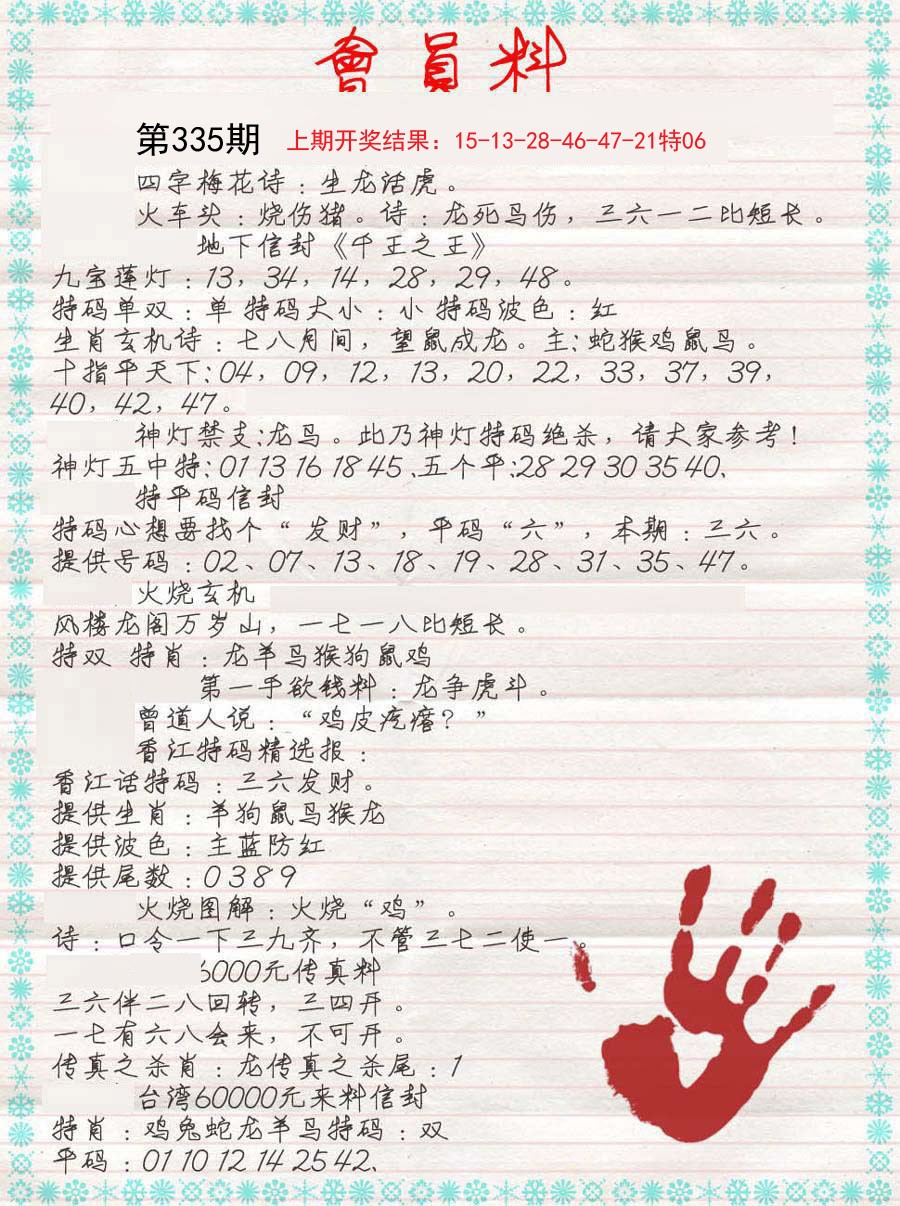 會員料
第335期 上期开奖结果：15-13-28-46-47-21特06
四字梅花诗：生龙活虎。
火车头：烧伤猪。诗：龙死鸟伤，三六一二比短长。
地下信封《千王之王》
九宝莲灯：13，34，14，28，29，48。
特码单双：单 特码大小：小 特码波色：红
生肖玄机诗：七八月间，望鼠成龙。主：蛇猴鸡鼠鸟。
十指平天下：04，09，12，13，20，22，33，37，39，
40，42，47。
神灯禁支：龙鸟。此乃神灯特码绝杀，请大家参考！
神灯五中特：01 13 16 18 45、五个平：28 29 30 35 40、
特平码信封
特码心想要找个“发财”，平码“六”，本期：三六。
提供号码：02、07、13、18、19、28、31、35、47。
火烧玄机
风楼龙阁万岁山，一七一八比短长。
特双 特肖：龙羊鸟猴狗鼠鸡
第一手欲钱料：龙争虎斗。
曾道人说：“鸡皮疙瘩？”
香江特码精选报：
香江话特码：三六发财。
提供生肖：羊狗鼠鸟猴龙
提供波色：主蓝防红
提供尾数：0 3 8 9
火烧图解：火烧“鸡”。
诗：口令一下三九齐，不管三七二使一。
6000元传真料
三六伴二八回转，三四开。
一七有六八会来，不可开。
传真之杀肖：龙传真之杀尾：1
台湾60000元来料信封
特肖：鸡兔蛇龙羊鸟特码：双
平码：01 10 12 14 25 42、